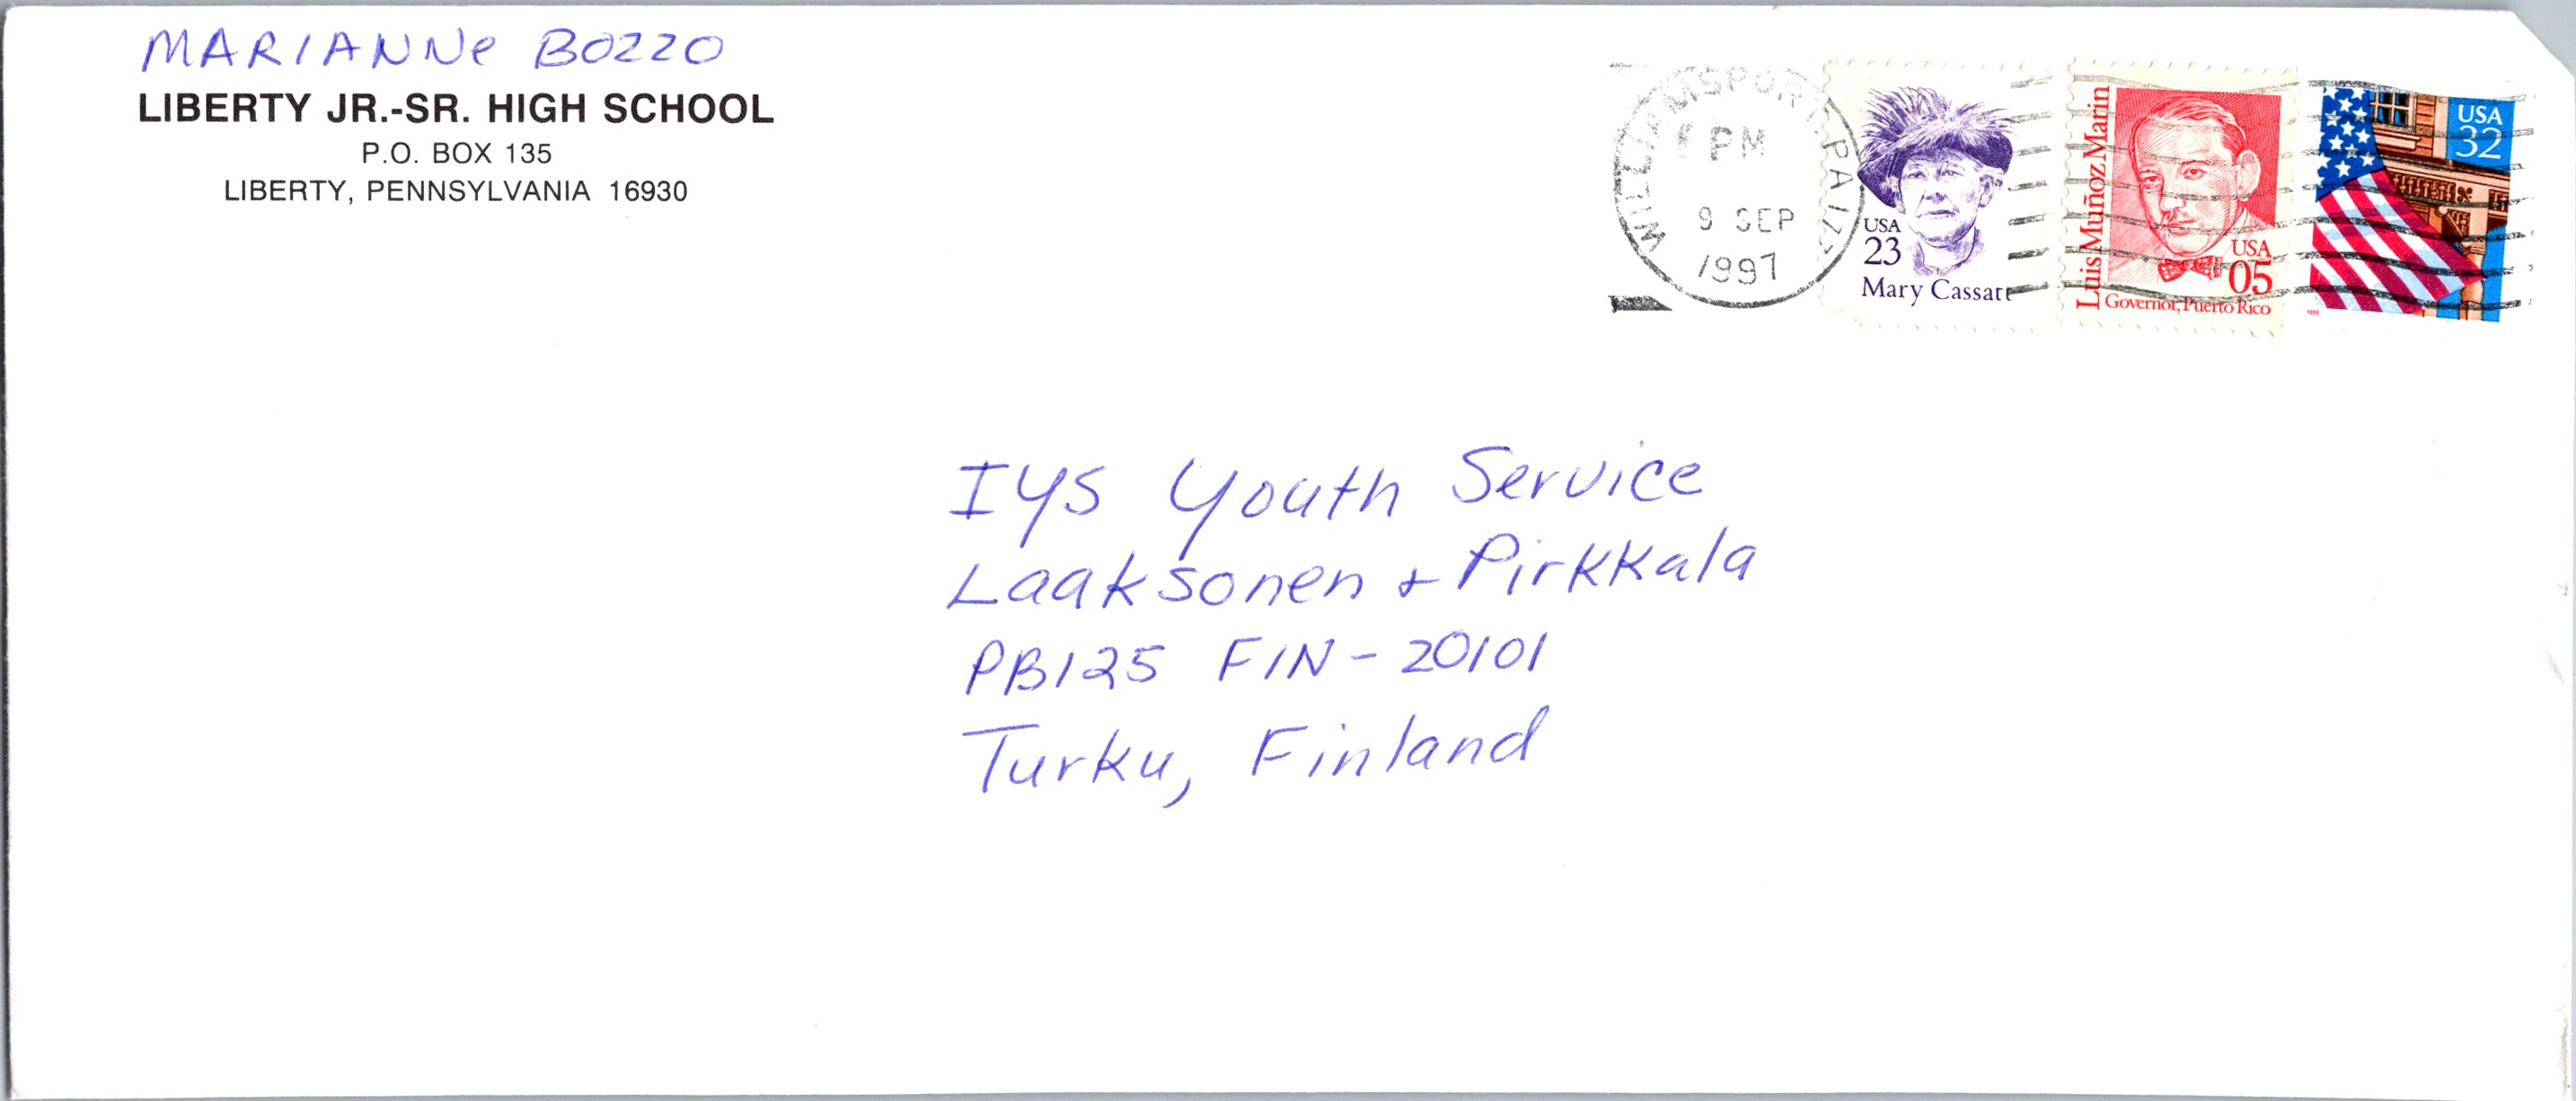 MARIANNe BOZZO
LIBERTY JR.-SR. HIGH SCHOOL
P.O. BOX 135
LIBERTY, PENNSYLVANIA 16930
WILLIAMSPORT, PA 177
PM
9 SEP
1997
USA
23
Mary Cassatt
Luis Muñoz Marín
USA
05
Governor, Puerto Rico
USA
32
1996
IYS Youth Service
Laaksonen + Pirkkala
PB125 FIN - 20101
Turku, Finland